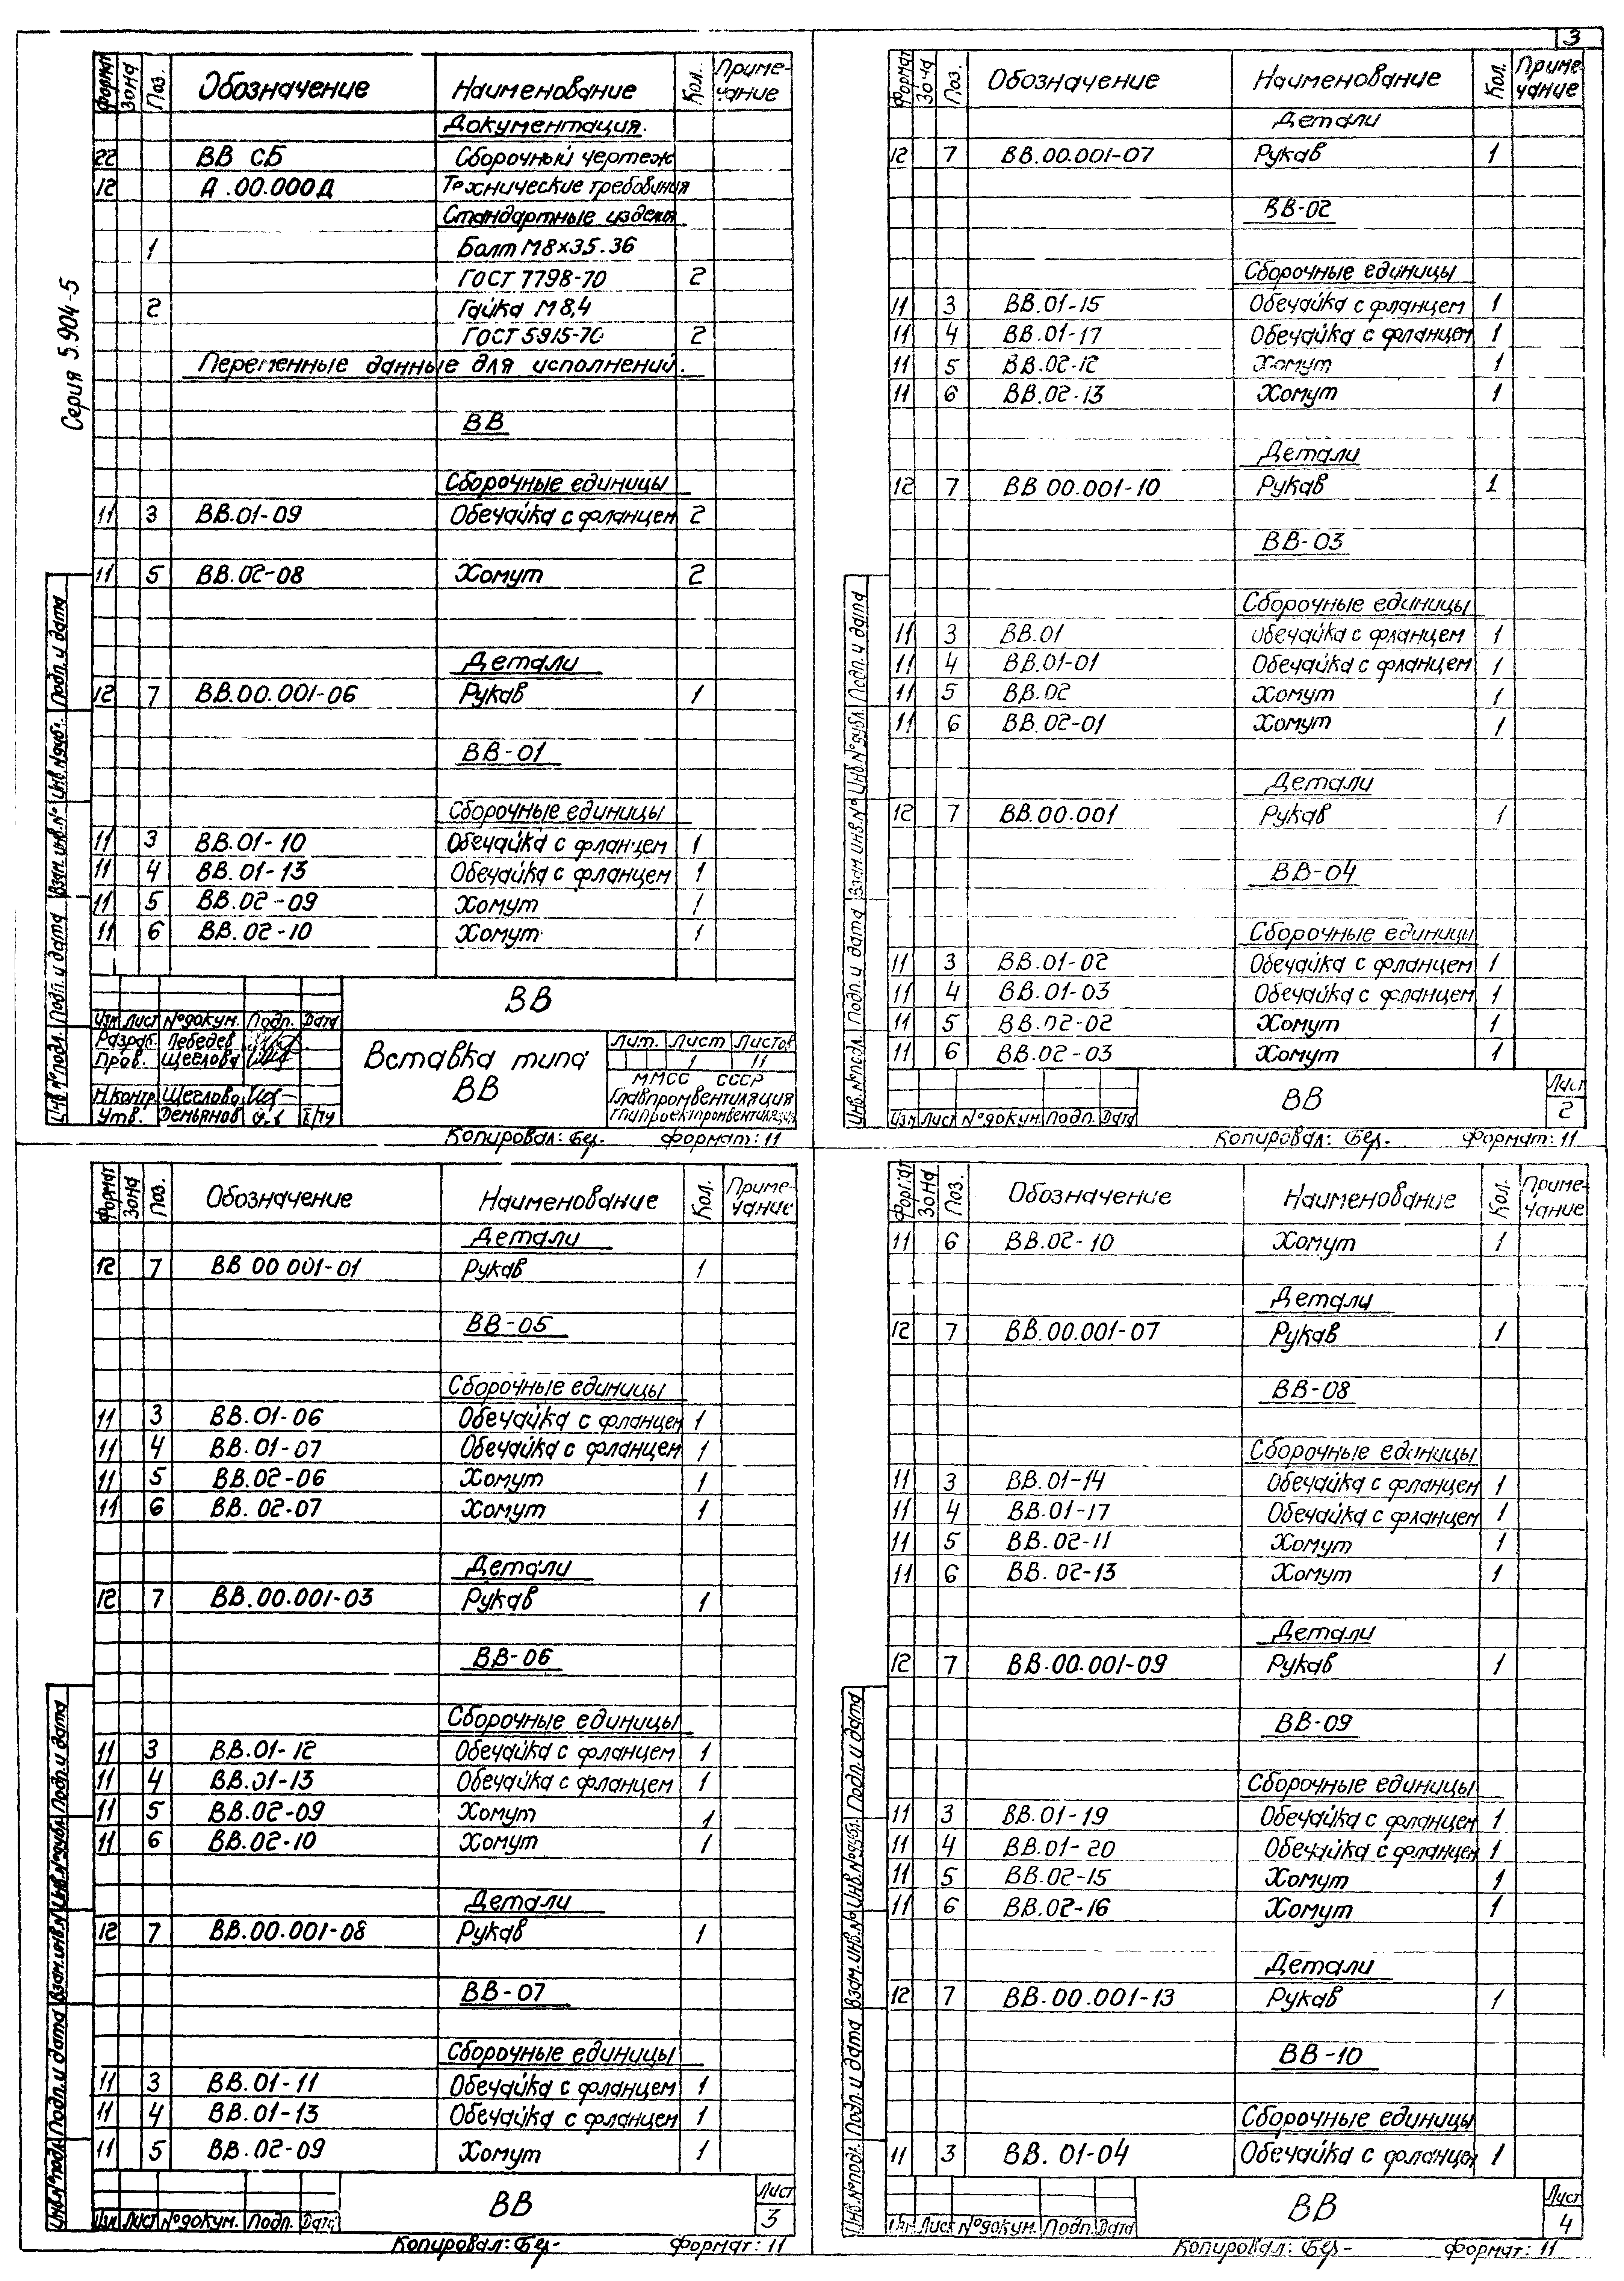 3
Серия 5.904-5
Формат Зона Поз. Обозначение Наименование Кол. Приме-
чание
Документация.
22 ВВ СБ Сборочный чертеж
12 А.00.000Д Технические требования
Стандартные изделия
1 Болт М8×35.36
ГОСТ 7798-70 2
2 Гайка М8,4
ГОСТ 5915-70 2
Переменные данные для исполнений.
ВВ
Сборочные единицы
11 3 ВВ.01-09 Обечайка с фланцем 2
11 5 ВВ.02-08 Хомут 2
Детали
12 7 ВВ.00.001-06 Рукав 1
ВВ-01
Сборочные единицы
11 3 ВВ.01-10 Обечайка с фланцем 1
11 4 ВВ.01-13 Обечайка с фланцем 1
11 5 ВВ.02-09 Хомут 1
11 6 ВВ.02-10 Хомут 1
Инв.№подл. Подп. и дата Взам.инв.№ Инв.№дубл. Подп. и дата
ВВ
Изм Лист №докум. Подп. Дата
Разраб. Лебедев
Пров. Щеглова
Н.контр. Щеглова
Утв. Демьянов
Вставка типа
ВВ
Лит. Лист Листов
1 11
ММСС СССР
Главпромвентиляция
Гипроектпромвентиляция
Копировал: Бег- Формат: 11
Формат Зона Поз. Обозначение Наименование Кол. Приме-
чание
Детали
12 7 ВВ.00.001-07 Рукав 1
ВВ-02
Сборочные единицы
11 3 ВВ.01-15 Обечайка с фланцем 1
11 4 ВВ.01-17 Обечайка с фланцем 1
11 5 ВВ.02-12 Хомут 1
11 6 ВВ.02-13 Хомут 1
Детали
12 7 ВВ 00.001-10 Рукав 1
ВВ-03
Сборочные единицы
11 3 ВВ.01 Обечайка с фланцем 1
11 4 ВВ.01-01 Обечайка с фланцем 1
11 5 ВВ.02 Хомут 1
11 6 ВВ.02-01 Хомут 1
Детали
12 7 ВВ.00.001 Рукав 1
ВВ-04
Сборочные единицы
11 3 ВВ.01-02 Обечайка с фланцем 1
11 4 ВВ.01-03 Обечайка с фланцем 1
11 5 ВВ.02-02 Хомут 1
11 6 ВВ.02-03 Хомут 1
Инв.№подл. Подп. и дата Взам.инв.№ Инв.№дубл. Подп. и дата
Изм Лист №докум. Подп. Дата
ВВ
Лист
2
Копировал: Бег- Формат: 11
Формат Зона Поз. Обозначение Наименование Кол. Приме-
чание
Детали
12 7 ВВ 00 001-01 Рукав 1
ВВ-05
Сборочные единицы
11 3 ВВ.01-06 Обечайка с фланцем 1
11 4 ВВ.01-07 Обечайка с фланцем 1
11 5 ВВ.02-06 Хомут 1
11 6 ВВ.02-07 Хомут 1
Детали
12 7 ВВ.00.001-03 Рукав 1
ВВ-06
Сборочные единицы
11 3 ВВ.01-12 Обечайка с фланцем 1
11 4 ВВ.01-13 Обечайка с фланцем 1
11 5 ВВ.02-09 Хомут 1
11 6 ВВ.02-10 Хомут 1
Детали
12 7 ВВ.00.001-08 Рукав 1
ВВ-07
Сборочные единицы
11 3 ВВ.01-11 Обечайка с фланцем 1
11 4 ВВ.01-13 Обечайка с фланцем 1
11 5 ВВ.02-09 Хомут 1
Инв.№подл. Подп. и дата Взам.инв.№ Инв.№дубл. Подп. и дата
Изм Лист №докум. Подп. Дата
ВВ
Лист
3
Копировал: Бег- Формат: 11
Формат Зона Поз. Обозначение Наименование Кол. Приме-
чание
11 6 ВВ.02-10 Хомут 1
Детали
12 7 ВВ.00.001-07 Рукав 1
ВВ-08
Сборочные единицы
11 3 ВВ.01-14 Обечайка с фланцем 1
11 4 ВВ.01-17 Обечайка с фланцем 1
11 5 ВВ.02-11 Хомут 1
11 6 ВВ.02-13 Хомут 1
Детали
12 7 ВВ.00.001-09 Рукав 1
ВВ-09
Сборочные единицы
11 3 ВВ.01-19 Обечайка с фланцем 1
11 4 ВВ.01-20 Обечайка с фланцем 1
11 5 ВВ.02-15 Хомут 1
11 6 ВВ.02-16 Хомут 1
Детали
12 7 ВВ.00.001-13 Рукав 1
ВВ-10
Сборочные единицы
11 3 ВВ.01-04 Обечайка с фланцем 1
Инв.№подл. Подп. и дата Взам.инв.№ Инв.№дубл. Подп. и дата
Изм Лист №докум. Подп. Дата
ВВ
Лист
4
Копировал: Бег- Формат: 11